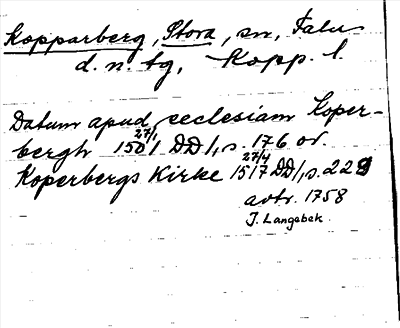 Kopparberg, Stora, sn, Falu
d. n. tg, Kopp. l.
Datum apud ecclesiam Koper-
bergh 27/1 1501 DD1, s. 176 or.
Koperbergs Kirke 27/4 1517 DD1, s. 229
avtr. 1758
J. Langebek.